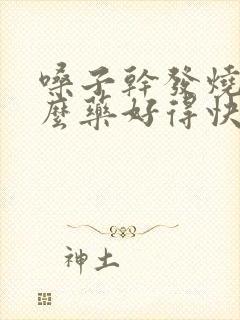 嗓子幹發燒
麼藥好得快
神土